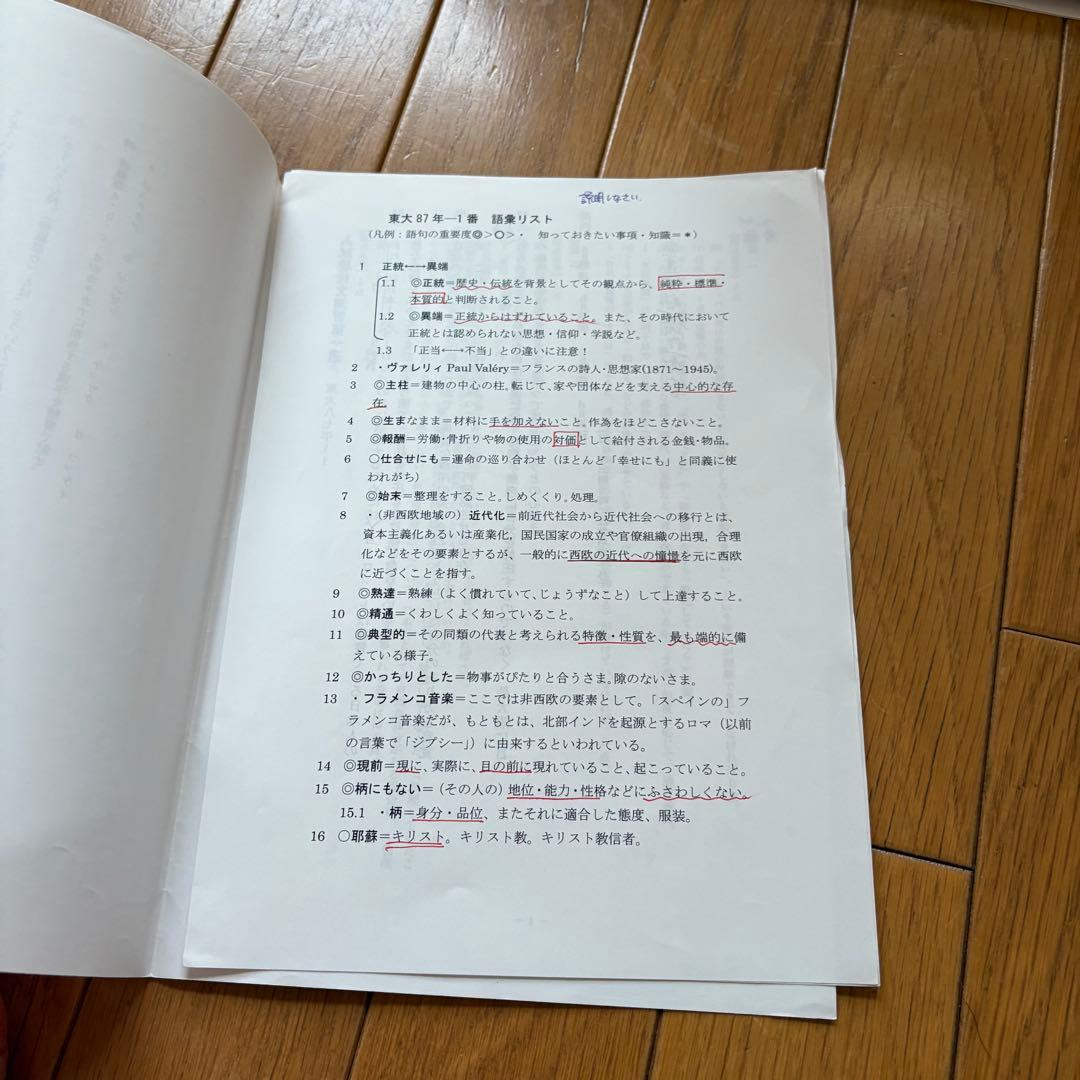 説明しなさい.
東大 87 年―1 番　語彙リスト
（凡例：語句の重要度◎>〇>・　知っておきたい事項・知識＝＊）
1　正統←→異端
1.1　◎正統＝歴史・伝統を背景としてその観点から、純粋・標準・
本質的と判断されること。
1.2　◎異端＝正統からはずれていること。また、その時代において
正統とは認められない思想・信仰・学説など。
1.3　「正当←→不当」との違いに注意！
2　・ヴァレリィ Paul Valéry＝フランスの詩人・思想家(1871～1945)。
3　◎主柱＝建物の中心の柱。転じて、家や団体などを支える中心的な存
在。
4　◎生まなまま＝材料に手を加えないこと。作為をほどこさないこと。
5　◎報酬＝労働・骨折りや物の使用の対価として給付される金銭・物品。
6　〇仕合せにも＝運命の巡り合わせ（ほとんど「幸せにも」と同義に使
われがち）
7　◎始末＝整理をすること。しめくくり。処理。
8　・（非西欧地域の）近代化＝前近代社会から近代社会への移行とは、
資本主義化あるいは産業化，国民国家の成立や官僚組織の出現，合理
化などをその要素とするが、一般的に西欧の近代への憧憬を元に西欧
に近づくことを指す。
9　◎熟達＝熟練（よく慣れていて、じょうずなこと）して上達すること。
10　◎精通＝くわしくよく知っていること。
11　◎典型的＝その同類の代表と考えられる特徴・性質を、最も端的に備
えている様子。
12　◎かっちりとした＝物事がぴたりと合うさま。隙のないさま。
13　・フラメンコ音楽＝ここでは非西欧の要素として。「スペインの」フ
ラメンコ音楽だが、もともとは、北部インドを起源とするロマ（以前
の言葉で「ジプシー」）に由来するといわれている。
14　◎現前＝現に、実際に、目の前に現れていること、起こっていること。
15　◎柄にもない＝（その人の）地位・能力・性格などにふさわしくない。
15.1　・柄＝身分・品位、またそれに適合した態度、服装。
16　〇耶蘇＝キリスト。キリスト教。キリスト教信者。